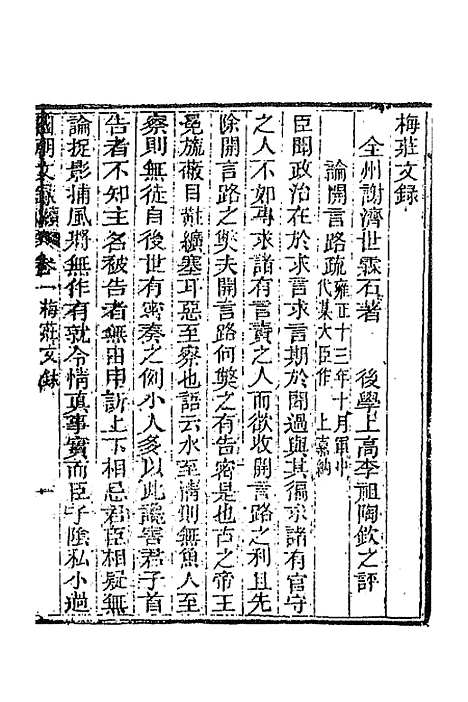 梅莊文錄
全州謝濟世霖石著　後學上高李祖陶欽之評
論開言路疏雍正十三年十月軍中代某大臣作　上嘉納
臣聞政治在於求言求言期於聞過與其徧求諸有官守
之人不如專求諸有言責之人而欲收開言路之利且先
除開言路之獘夫開言路何獘之有告密是也古之帝王
冕旒蔽目黈纊塞耳惡至察也語云水至清則無魚人至
察則無徒自後世有密奏之例小人多以此讒害君子首
告者不知主名被告者無由申訴上下相忌君臣相疑無
論捉影捕風將無作有就令情真事實而臣子陰私小過
國朝文錄續編　卷一梅莊文錄　一